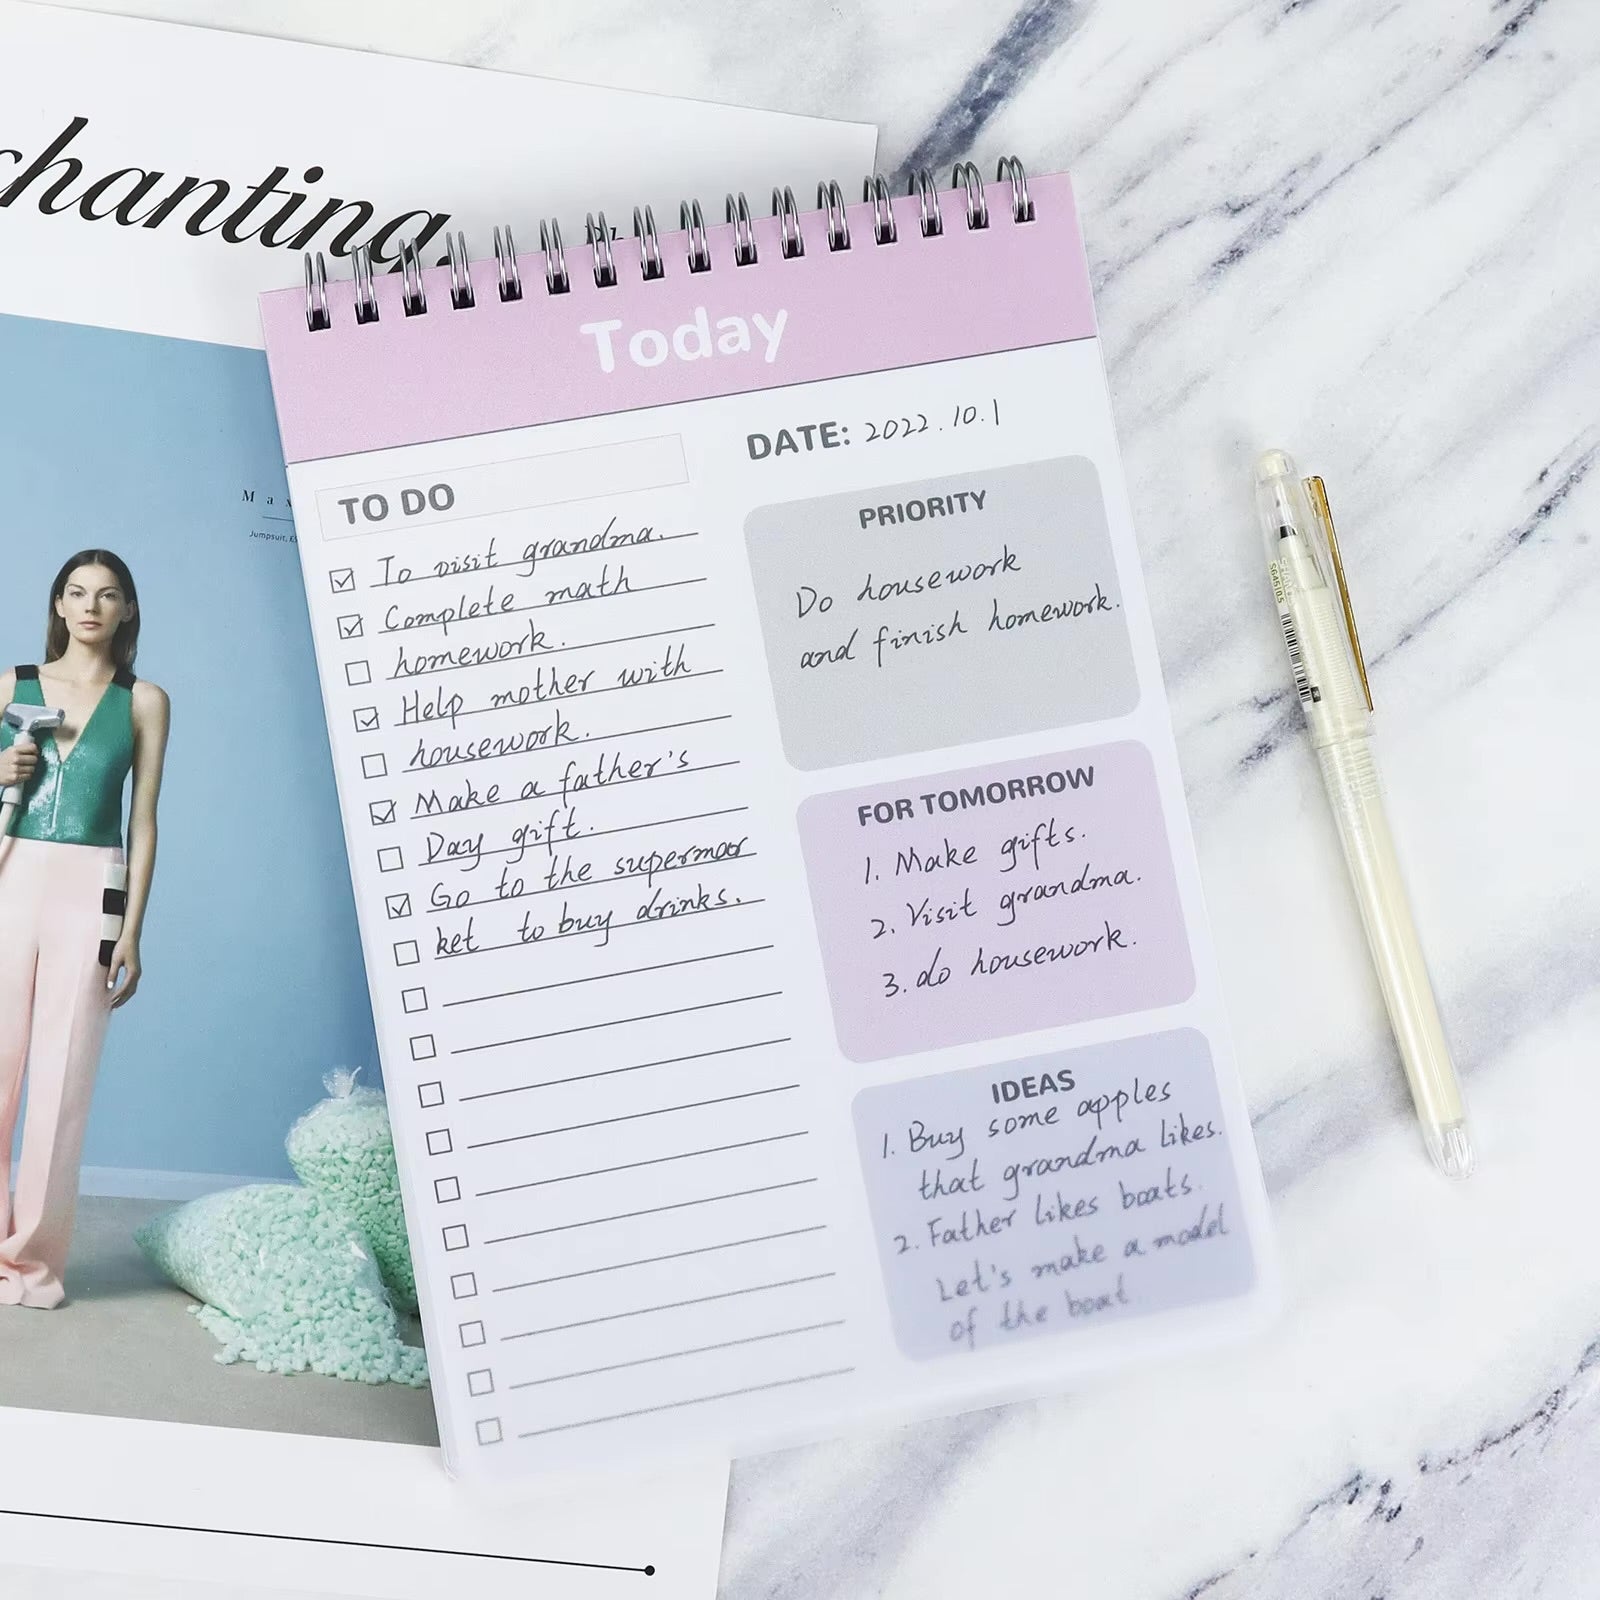 chanting.
Today
DATE: 2022.10.1
TO DO
To visit grandma.
Complete math
homework.
Help mother with
housework.
Make a father's
Day gift.
Go to the supermar
ket to buy drinks.
PRIORITY
Do housework
and finish homework.
FOR TOMORROW
1. Make gifts.
2. Visit grandma.
3. do housework.
IDEAS
1. Buy some apples
that grandma likes.
2. Father likes boats.
Let's make a model
of the boat
Max
Jumpsuit,